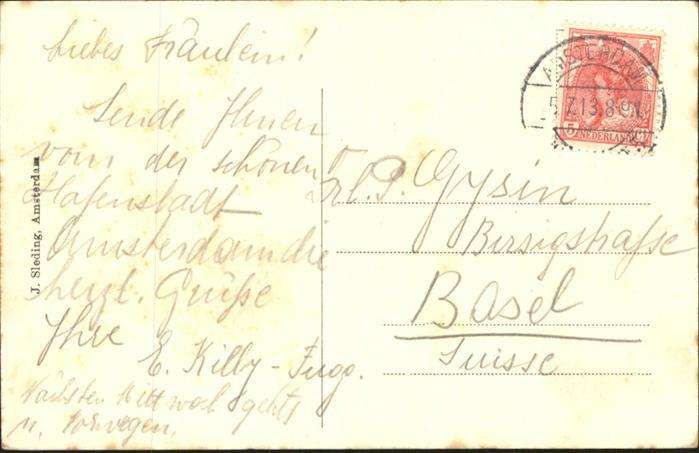 Liebes Fräulein!
Sende Ihnen
von der schönen
Hafenstadt
Amsterdam die
herzl. Grüße
Ihre
E. Killy-
Nächsten Mittwoch geht's
n. Norwegen.
J. Sleding, Amsterdam
AMSTERDAM
5.7.13.8-9N.
5 NEDERLAND CT
Frl. P. Gysin
Birsigstraße
Basel
Suisse